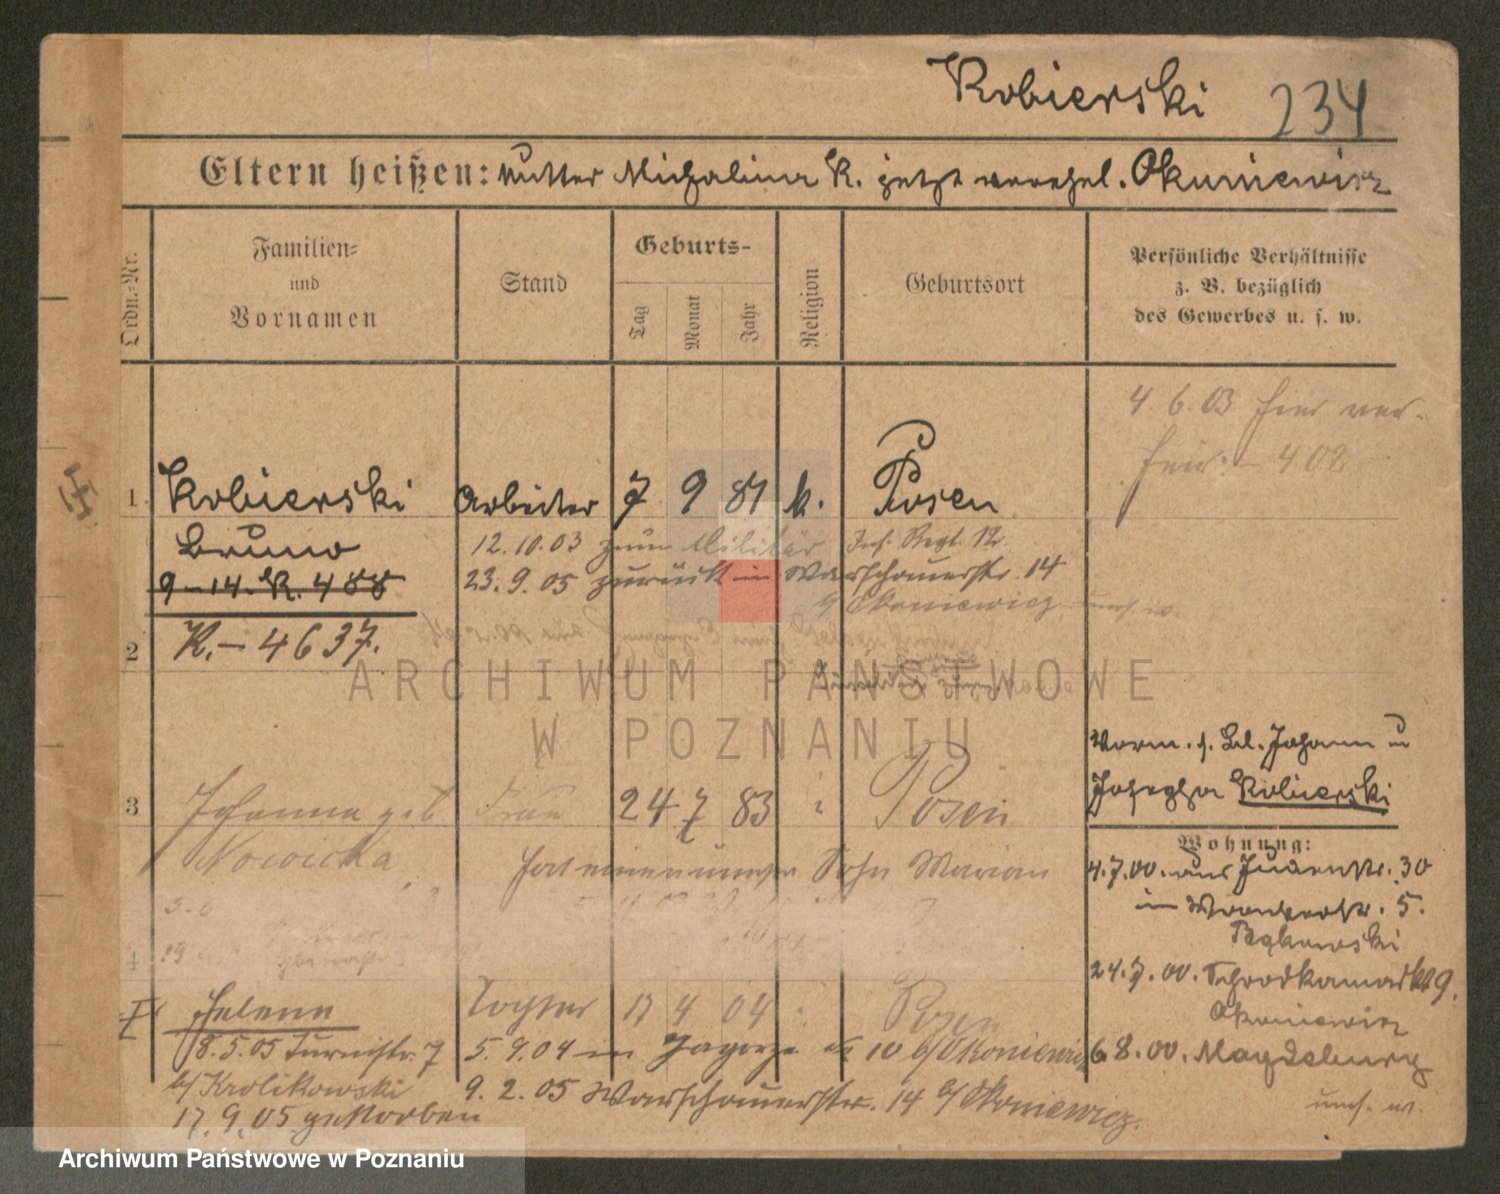 Kobierski 234
Eltern heißen: Mutter Michalina K. jetzt verehel. Okuniewicz
Ordn.-Nr.
Familien-
und
Vornamen
Stand
Geburts-
Tag
Monat
Jahr
Religion
Geburtsort
Persönliche Verhältnisse
z. B. bezüglich
des Gewerbes u. s. w.
4. 6. 03 hier ver-
heir. - 402
1. Kobierski Arbeiter 7 9 81 k. Posen
Bruno
12. 10. 03 zum Militär Inf. Regt. Nr.
9-14. K. 488
23. 9. 05 zurück in Warschauerstr. 14
b/ Okoniewicz, umst. w.
2 K.- 4637.
ARCHIWUM PAŃSTWOWE
W POZNANIU
Vorm. s. Johann u
Josepha Kobierski
3 Johanna geb Frau 24 7 83 Posen
Nowicka
hat einen unehe Sohn Marian
Wohnung:
4. 7. 00. aus Judenstr. 30
in 5.
24. 7. 00. Schrodkamarkt 9.
Okoniewicz
6 8. 00. Magdeburg
umst. w.
4
Helene Tochter 17 4 04 Posen
18. 5. 05 Turmstr. 7
5. 9. 04 in Zagorze 10 b/ Okoniewicz
b/ Krolikowski
9. 2. 05 Warschauerstr. 14 b/ Okoniewicz.
17. 9. 05 gestorben
Archiwum Państwowe w Poznaniu